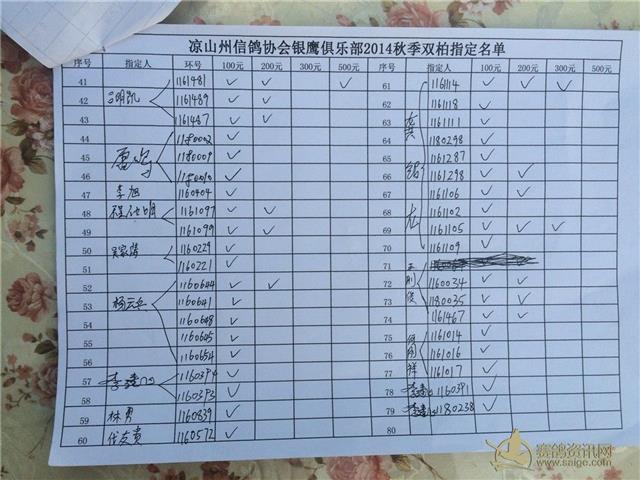 凉山州信鸽协会银鹰俱乐部2014秋季双柏指定名单
序号 指定人 环号 100元 200元 300元 500元 序号 指定人 环号 100元 200元 300元 500元
41 1161481 ✓ ✓ ✓ 61 1161114 ✓ ✓ ✓
42 1161489 ✓ ✓ 62 1161118 ✓
43 1161487 ✓ ✓ 63 1161111 ✓
44 1180002 ✓ 64 1180298 ✓
45 1180009 ✓ 65 1161287 ✓
46 1180010 ✓ 66 1161298 ✓ ✓
47 李旭 1160404 ✓ 67 1161106 ✓ ✓
48 1161097 ✓ ✓ 68 1161102 ✓
49 1161099 ✓ ✓ 69 1161105 ✓ ✓ ✓
50 1160229 ✓ 70 1161109 ✓
51 1160221 ✓ 71
52 1160644 ✓ ✓ 72 1160034 ✓ ✓
53 杨云兵 1160641 ✓ 73 1180035 ✓ ✓
54 1160648 ✓ 74 1161467 ✓ ✓
55 1160605 ✓ 75 1161014 ✓
56 1160654 ✓ 76 1161016 ✓
57 1160394 ✓ 77 1161017 ✓
58 1160393 ✓ 78 1160391 ✓
59 林勇 1160839 ✓ 79 1180238 ✓
60 代友贵 1160572 ✓ 80
赛鸽资讯网
www.saige.com